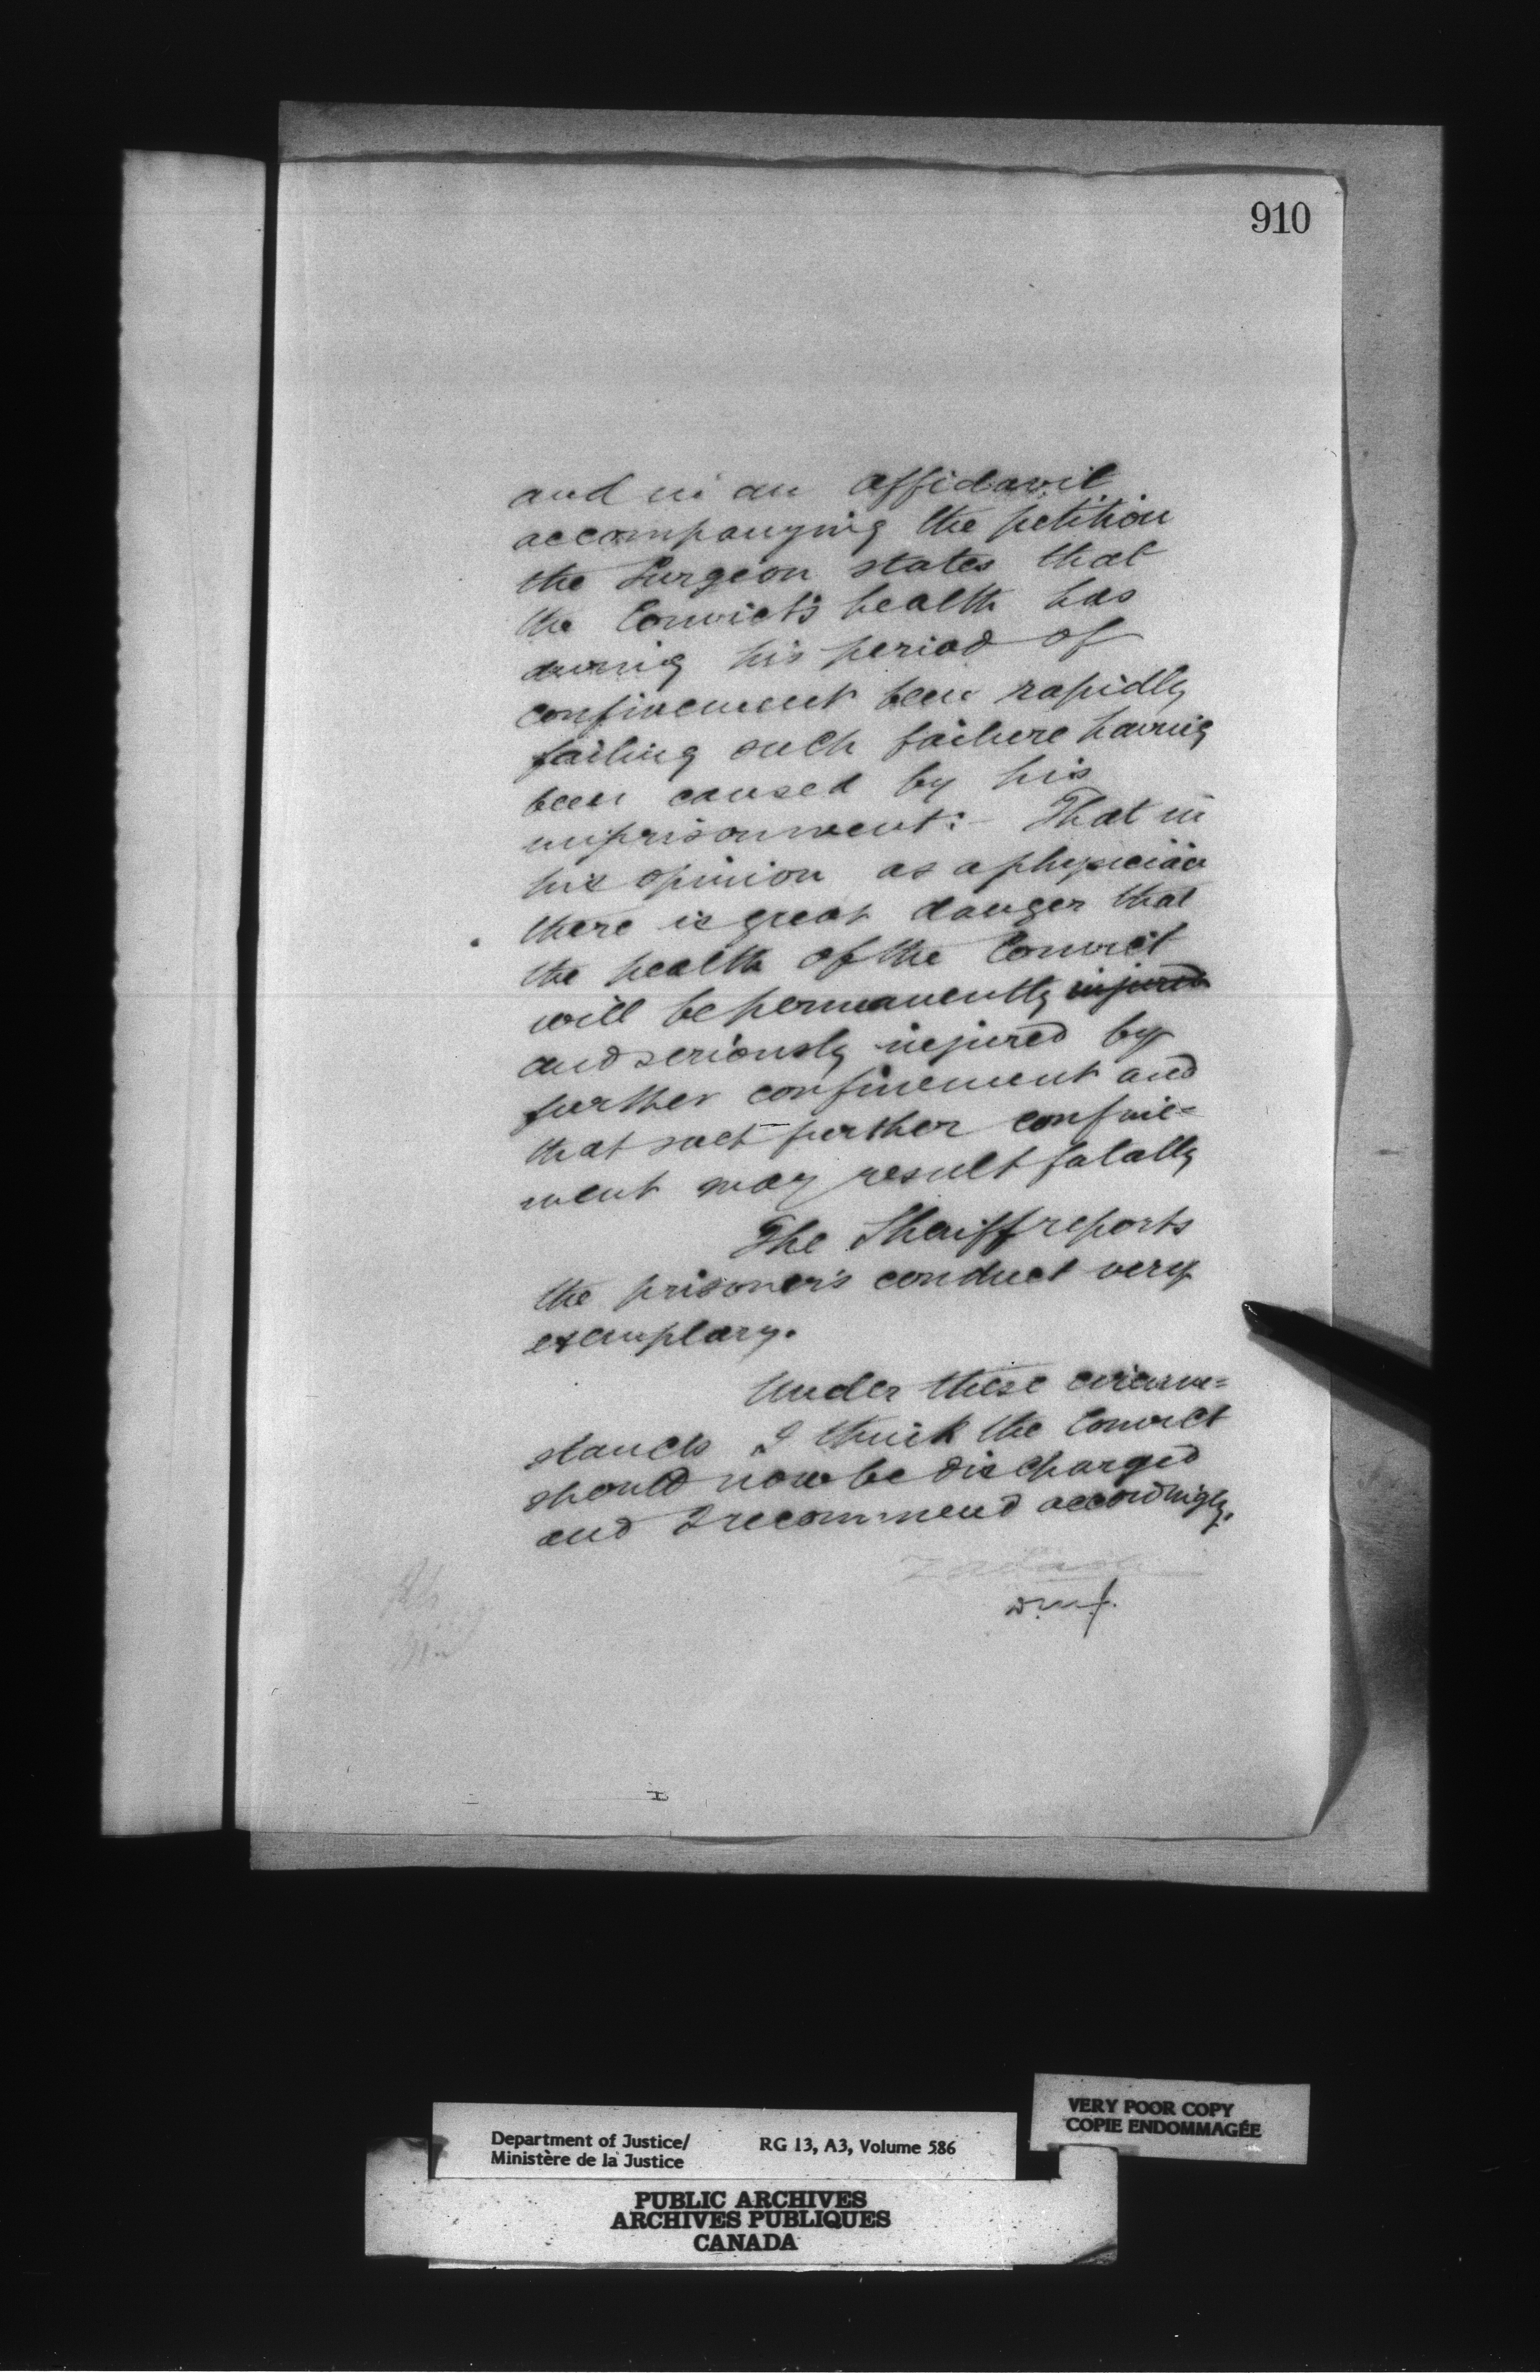 910
and in an affidavit
accompanying the petition
the Surgeon states that
the Convict's health has
during his period of
confinement been rapidly
failing such failure having
been caused by his
imprisonment:- That in
his opinion as a physician
there is great danger that
the health of the Convict
will be permanently injured
and seriously injured by
further confinement and
that such further confine=
ment may result fatally
The Sheriff reports
the prisoner's conduct very
exemplary.
Under these circum=
stances I think the Convict
should now be discharged
and I recommend accordingly.
D.M.J.
Department of Justice/ RG 13, A3, Volume 586
Ministère de la Justice
VERY POOR COPY
COPIE ENDOMMAGÉE
PUBLIC ARCHIVES
ARCHIVES PUBLIQUES
CANADA